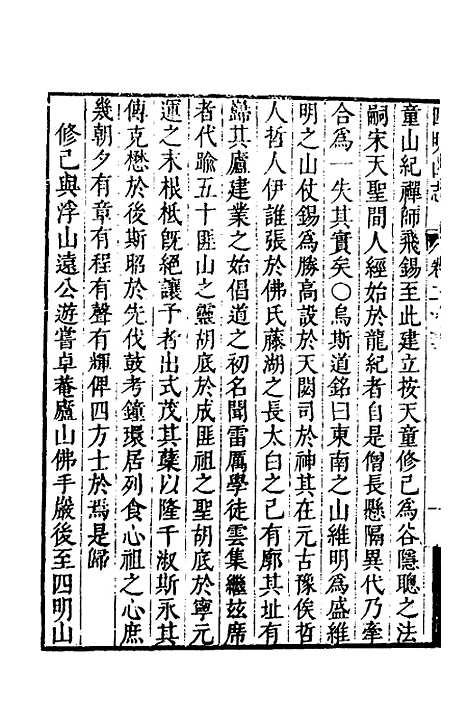 四明山志 卷二
童山紀禪師飛錫至此建立按天童修己為谷隱聰之法
嗣宋天聖間人經始於龍紀者自是僧長懸隔異代乃牽
合為一失其實矣○烏斯道銘曰東南之山維明為盛維
明之山仗錫為勝高設於天閟司於神其在元古豫俟哲
人哲人伊誰張於佛氏藤湖之長太白之己有廓其址有
歸其廬建業之始倡道之初名聞雷厲學徒雲集繼茲席
者代踰五十匪山之靈胡底於成匪祖之聖胡底於寧元
運之末根柢旣絕讓子者出式茂其蘖以隆千淑斯永其
傳克懋於後斯昭於先伐鼓考鐘環居列食心祖之心庶
幾朝夕有章有程有聲有輝俾四方士於焉是歸
修己與浮山遠公遊嘗卓菴廬山佛手巖後至四明山